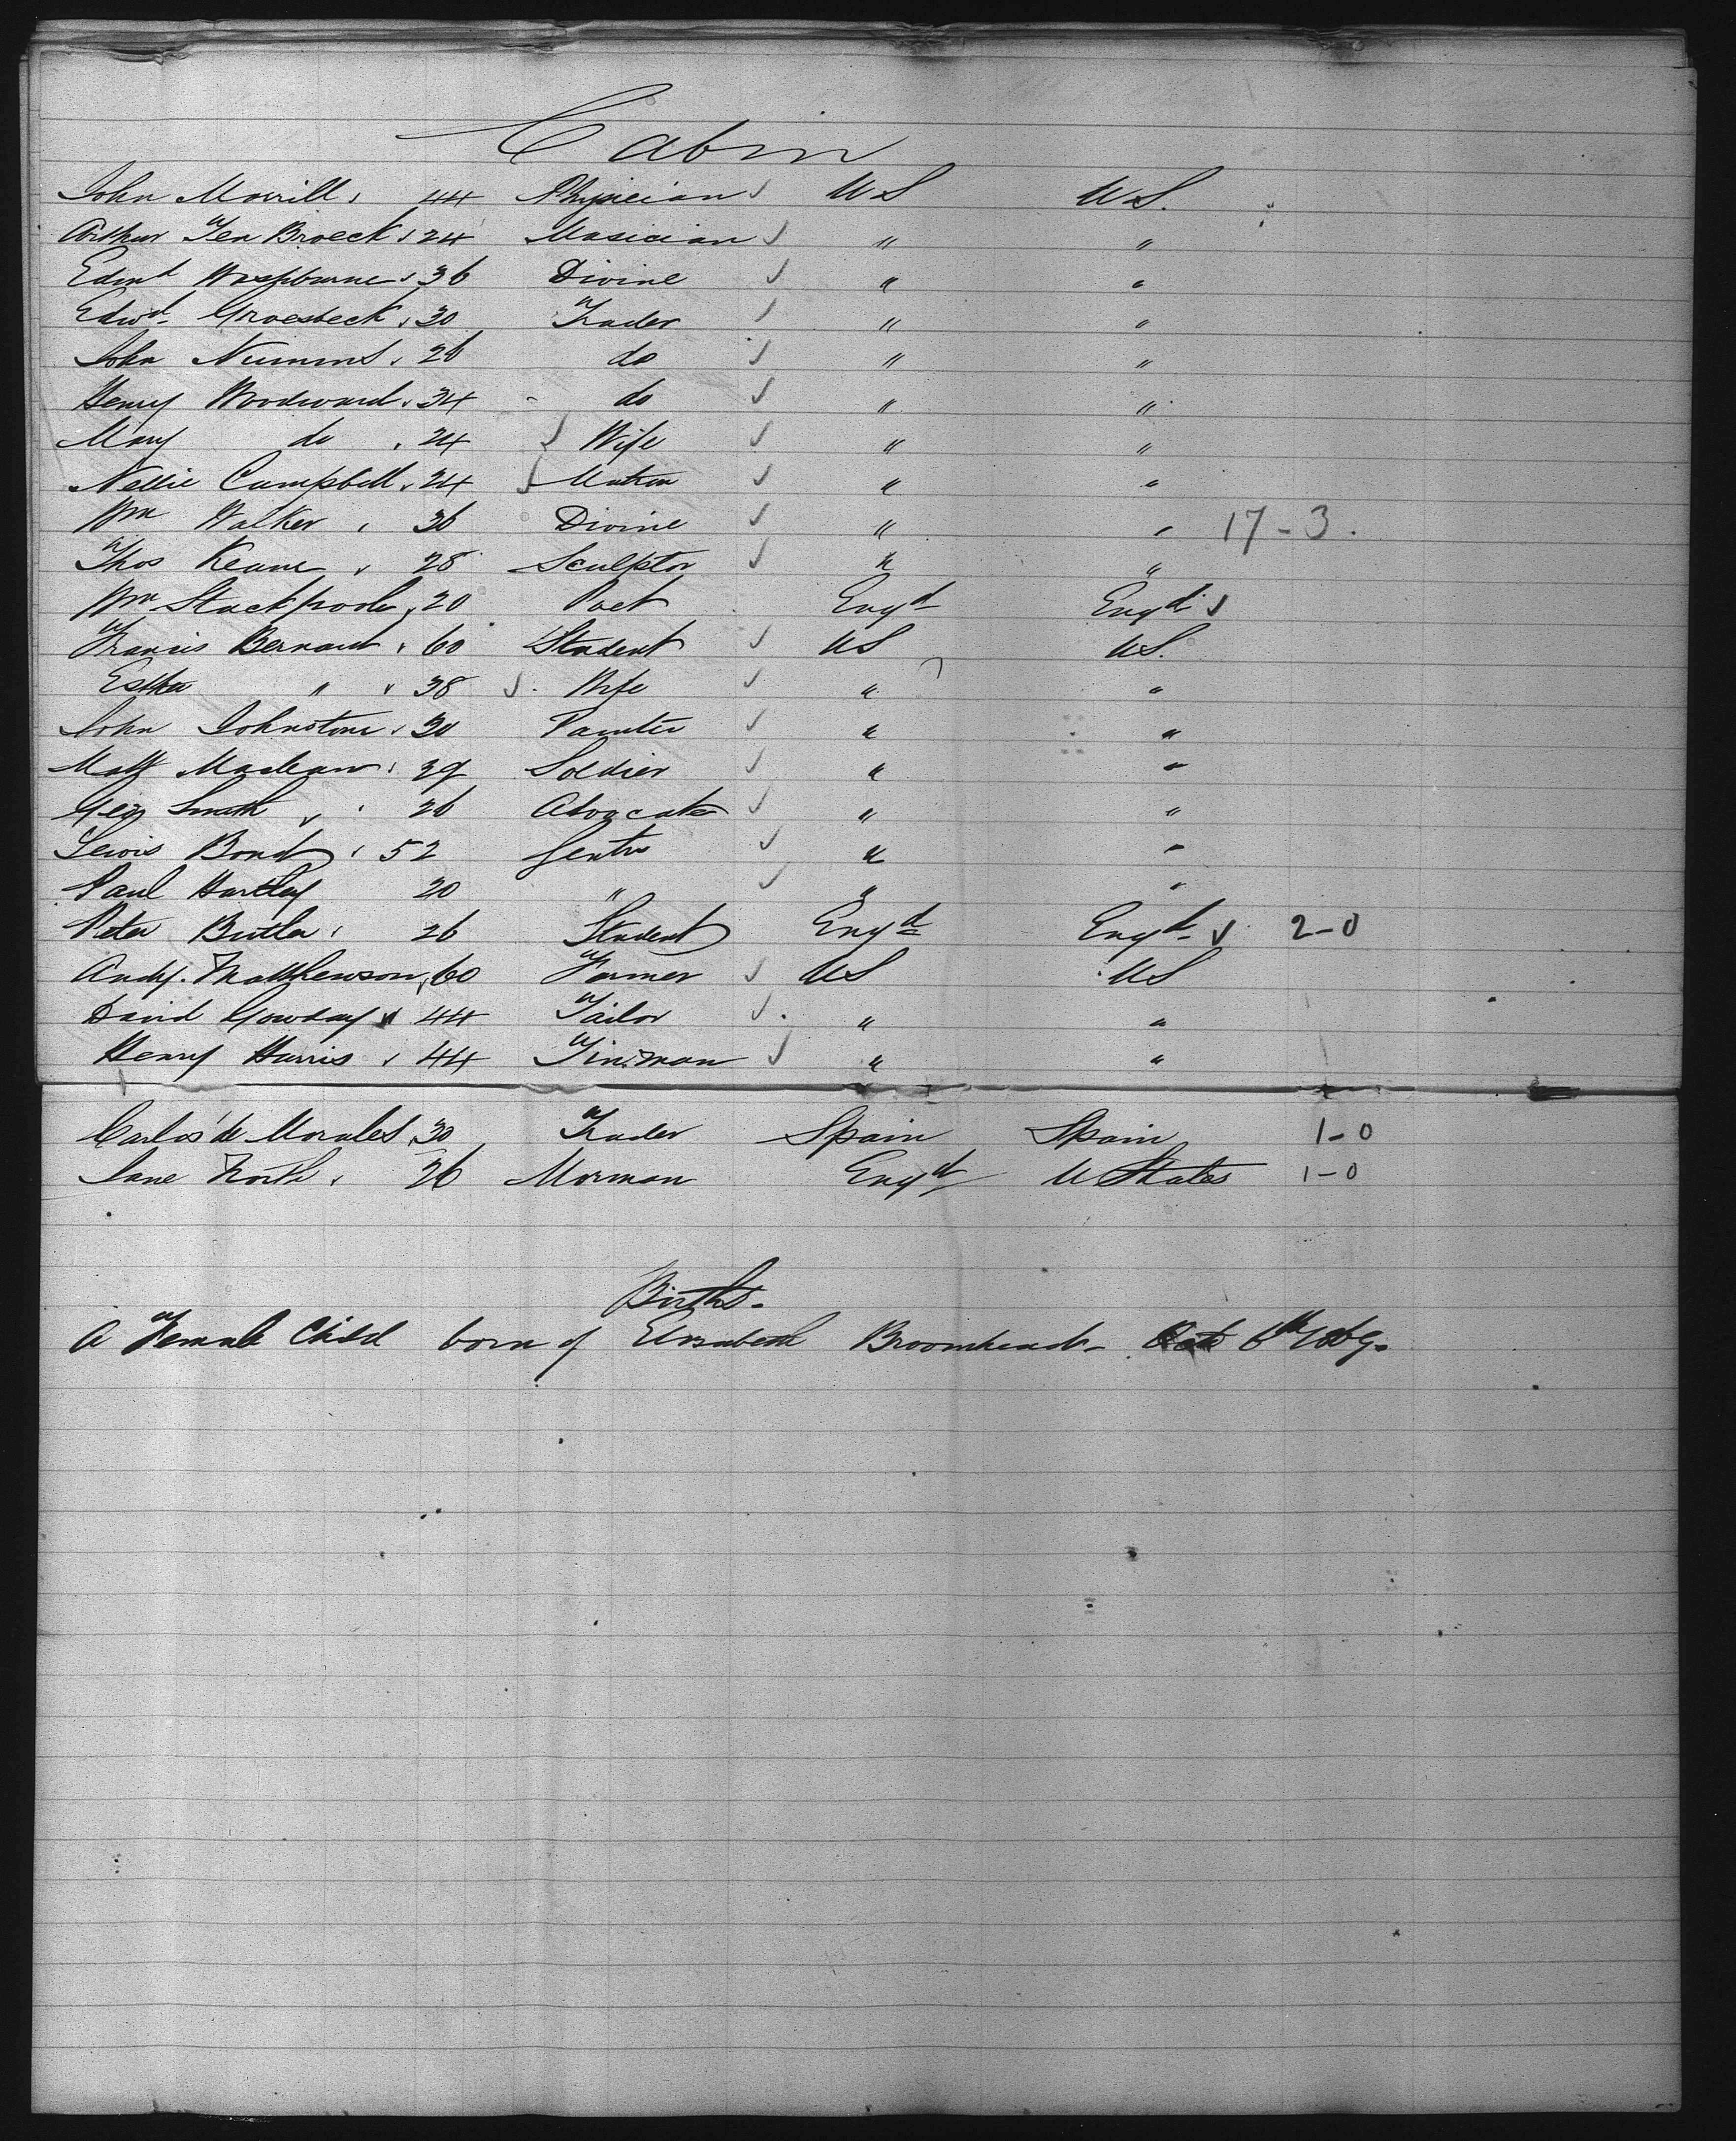 Cabin
John Morrill 44 Physician U S U S.
Arthur Ten Broeck 24 Musician " "
Edmd Washburne 36 Divine " "
Edwd Groesbeck 30 Trader " "
John Nimms 26 do " "
Henry Woodward 34 do " "
Mary do 24 Wife " "
Nellie Campbell 24 Matron " "
Wm Walker 36 Divine " " 17-3.
Thos Keane 28 Sculptor " "
Wm Stackpoole 20 Poet Engd Engd
Francis Bernard 60 Student US US.
Esther " 38 Wife " "
John Johnstone 30 Painter " "
Matt Maclean 29 Soldier " "
Geo Smith 26 Advocate " "
Lewis Bond 52 Gentn " "
Paul Hartley 20 " " "
Peter Butler 26 Student Engd Engd 2-0
Andy. Matthewson 60 Farmer US US
David Gowday 44 Tailor " "
Henry Harris 44 Tinman " "
Carlos de Morales 30 Trader Spain Spain 1-0
Jane North 26 Morman Engd U States 1-0
Births.
A Female Child born of Elizabeth Broomhead - Octo 6th